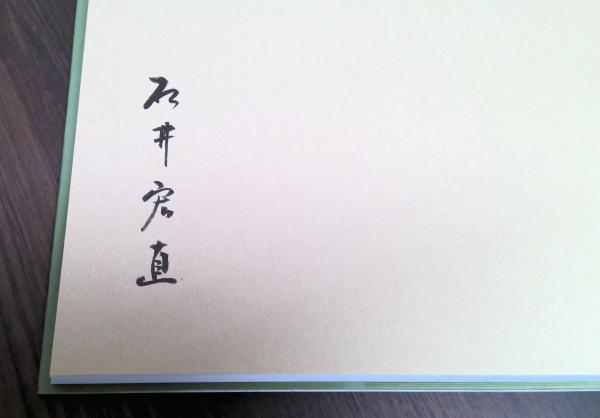 石井宏直